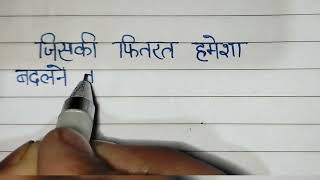 जिसकी फितरत हमेशा
बदलने